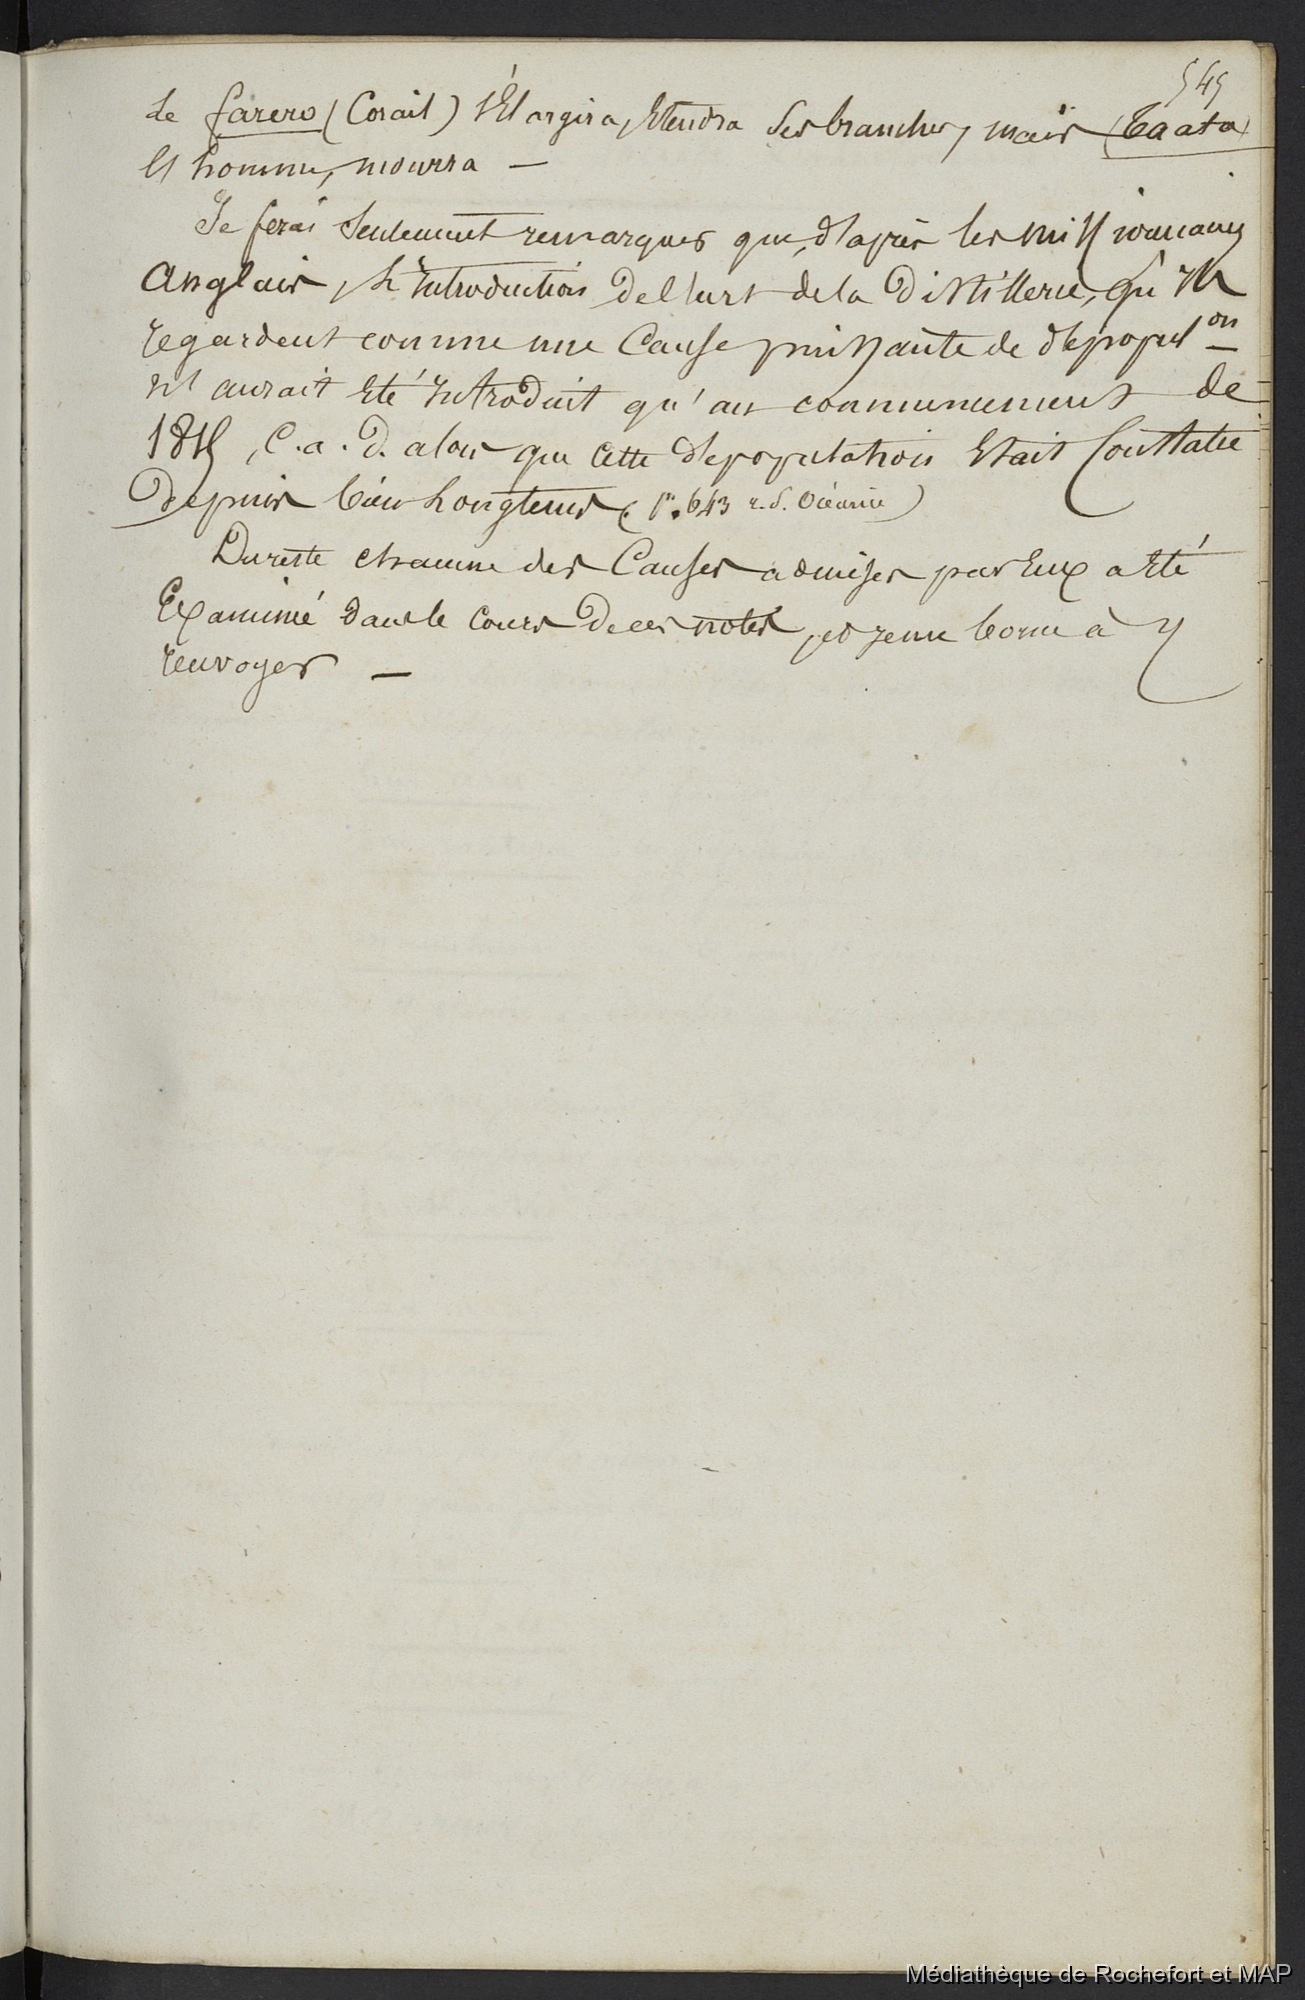 545
Le farero (Corail) s'Elargira, Etendra ses branches, mais (taata)
l'homme, mourra —
Je ferai seulement remarquer que, d'après les missionnaires
anglais, l'introduction de l'art de la Distillerie, qu'ils
regardent comme une Cause puissante de depopulon
n'aurait Eté introduit qu'au commencement de
1815, C.a.D. alors que cette depopulation Etait Constatée
Depuis bien longtems (p. 643 r.s. Océanie)
Dureste chacune des Causes admises par Eux a Eté
Examiné dans le Cours de ces notes, et je me borne à y
renvoyer —
Médiathèque de Rochefort et MAP